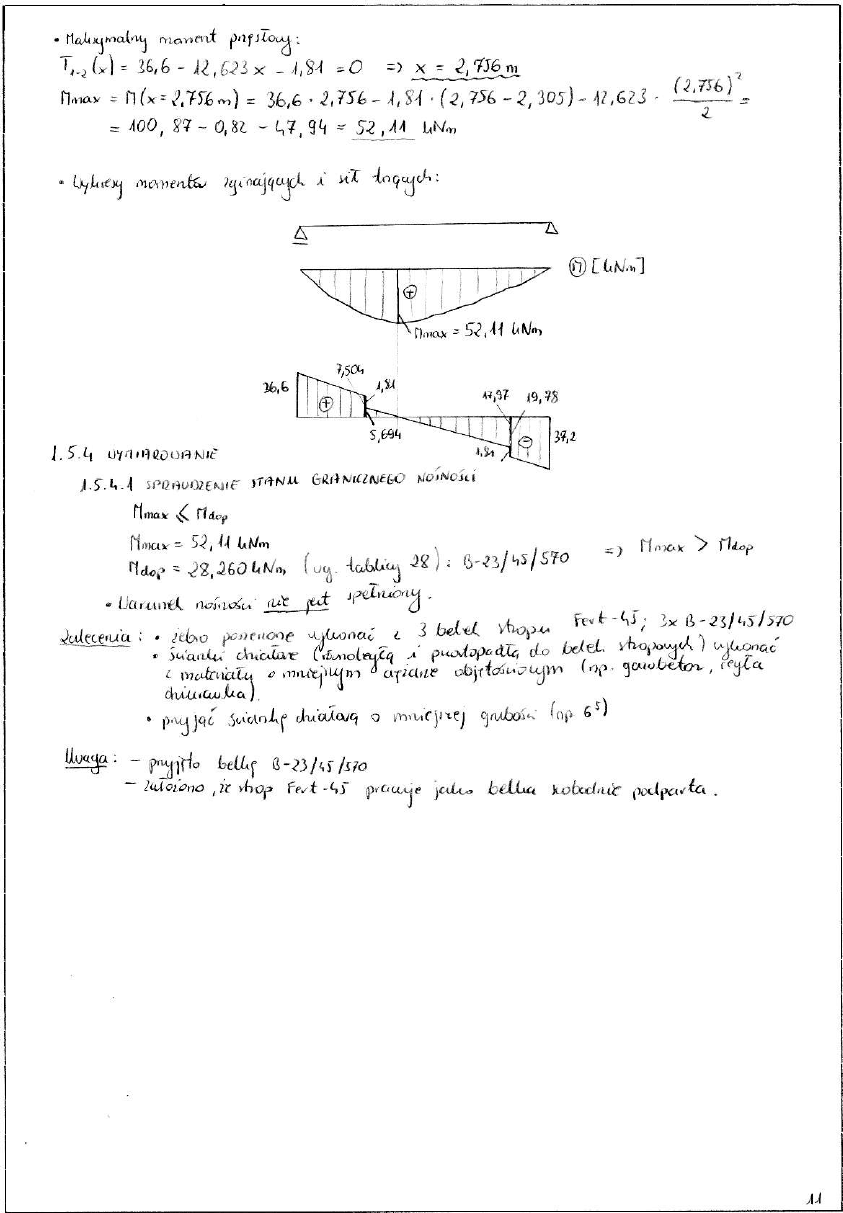 • Maksymalny moment przęsłowy:
T₁₋₂(x) = 36,6 – 12,623x – 1,81 = 0 => x = 2,756 m
Mmax = M(x=2,756m) = 36,6 · 2,756 – 1,81 · (2,756 – 2,305) – 12,623 · (2,756)²/2 =
= 100,87 – 0,82 – 47,94 = 52,11 kNm
• Wykresy momentów zginających i sił tnących:
M [kNm]
+
Mmax = 52,11 kNm
7,504
36,6
1,81
17,97
19,78
+
5,694
–
39,2
1,81
1.5.4 WYMIAROWANIE
1.5.4.1 SPRAWDZENIE STANU GRANICZNEGO NOŚNOŚCI
Mmax ≤ Mdop
Mmax = 52,11 kNm
Mdop = 28,260 kNm (wg. tablicy 28) : B-23/45/570 => Mmax > Mdop
• Warunek nośności nie jest spełniony.
Zalecenia : • żebro poszerzone wykonać z 3 belek stropu Fert-45; 3x B-23/45/570
• ścianki działowe (równoległą i prostopadłą do belek stropowych) wykonać
z materiału o mniejszym ciężarze objętościowym (np. gazobeton, cegła
dziurawka).
• przyjąć ściankę działową o mniejszej grubości (np 6⁵)
Uwaga : – przyjęto belkę B-23/45/570
– założono, że strop Fert-45 pracuje jako belka swobodnie podparta.
11